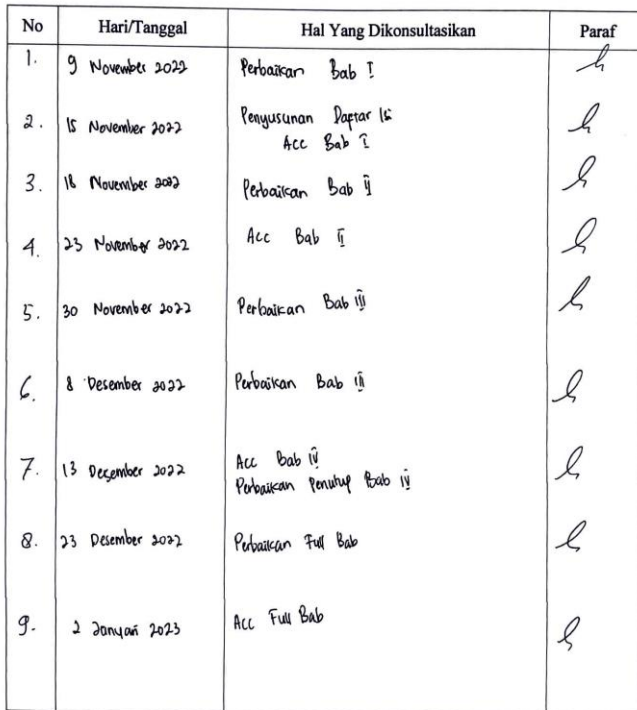 No Hari/Tanggal Hal Yang Dikonsultasikan Paraf
1. 9 November 2022 Perbaikan Bab I
2. 15 November 2022 Penyusunan Daftar Isi
Acc Bab I
3. 18 November 2022 Perbaikan Bab II
4. 23 November 2022 Acc Bab II
5. 30 November 2022 Perbaikan Bab III
6. 8 Desember 2022 Perbaikan Bab III
7. 13 Desember 2022 Acc Bab IV
Perbaikan Penutup Bab IV
8. 23 Desember 2022 Perbaikan Full Bab
9. 2 Januari 2023 Acc Full Bab